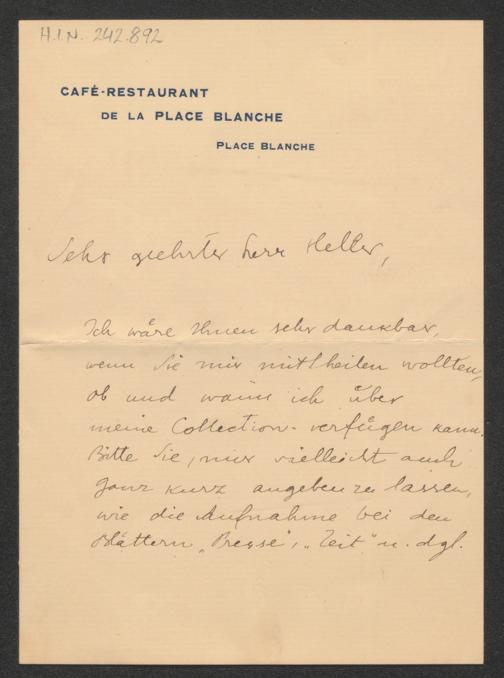 H.I.N. 242.892
CAFÉ-RESTAURANT
DE LA PLACE BLANCHE
PLACE BLANCHE
Sehr geehrter Herr Heller,
Ich wäre Ihnen sehr dankbar,
wenn Sie mir mittheilen wollten,
ob und wann ich über
meine Collection verfügen kann.
Bitte Sie, mir vielleicht auch
ganz kurz angeben zu lassen,
wie die Aufnahme bei den
Blättern „Presse", „Zeit" u. dgl.